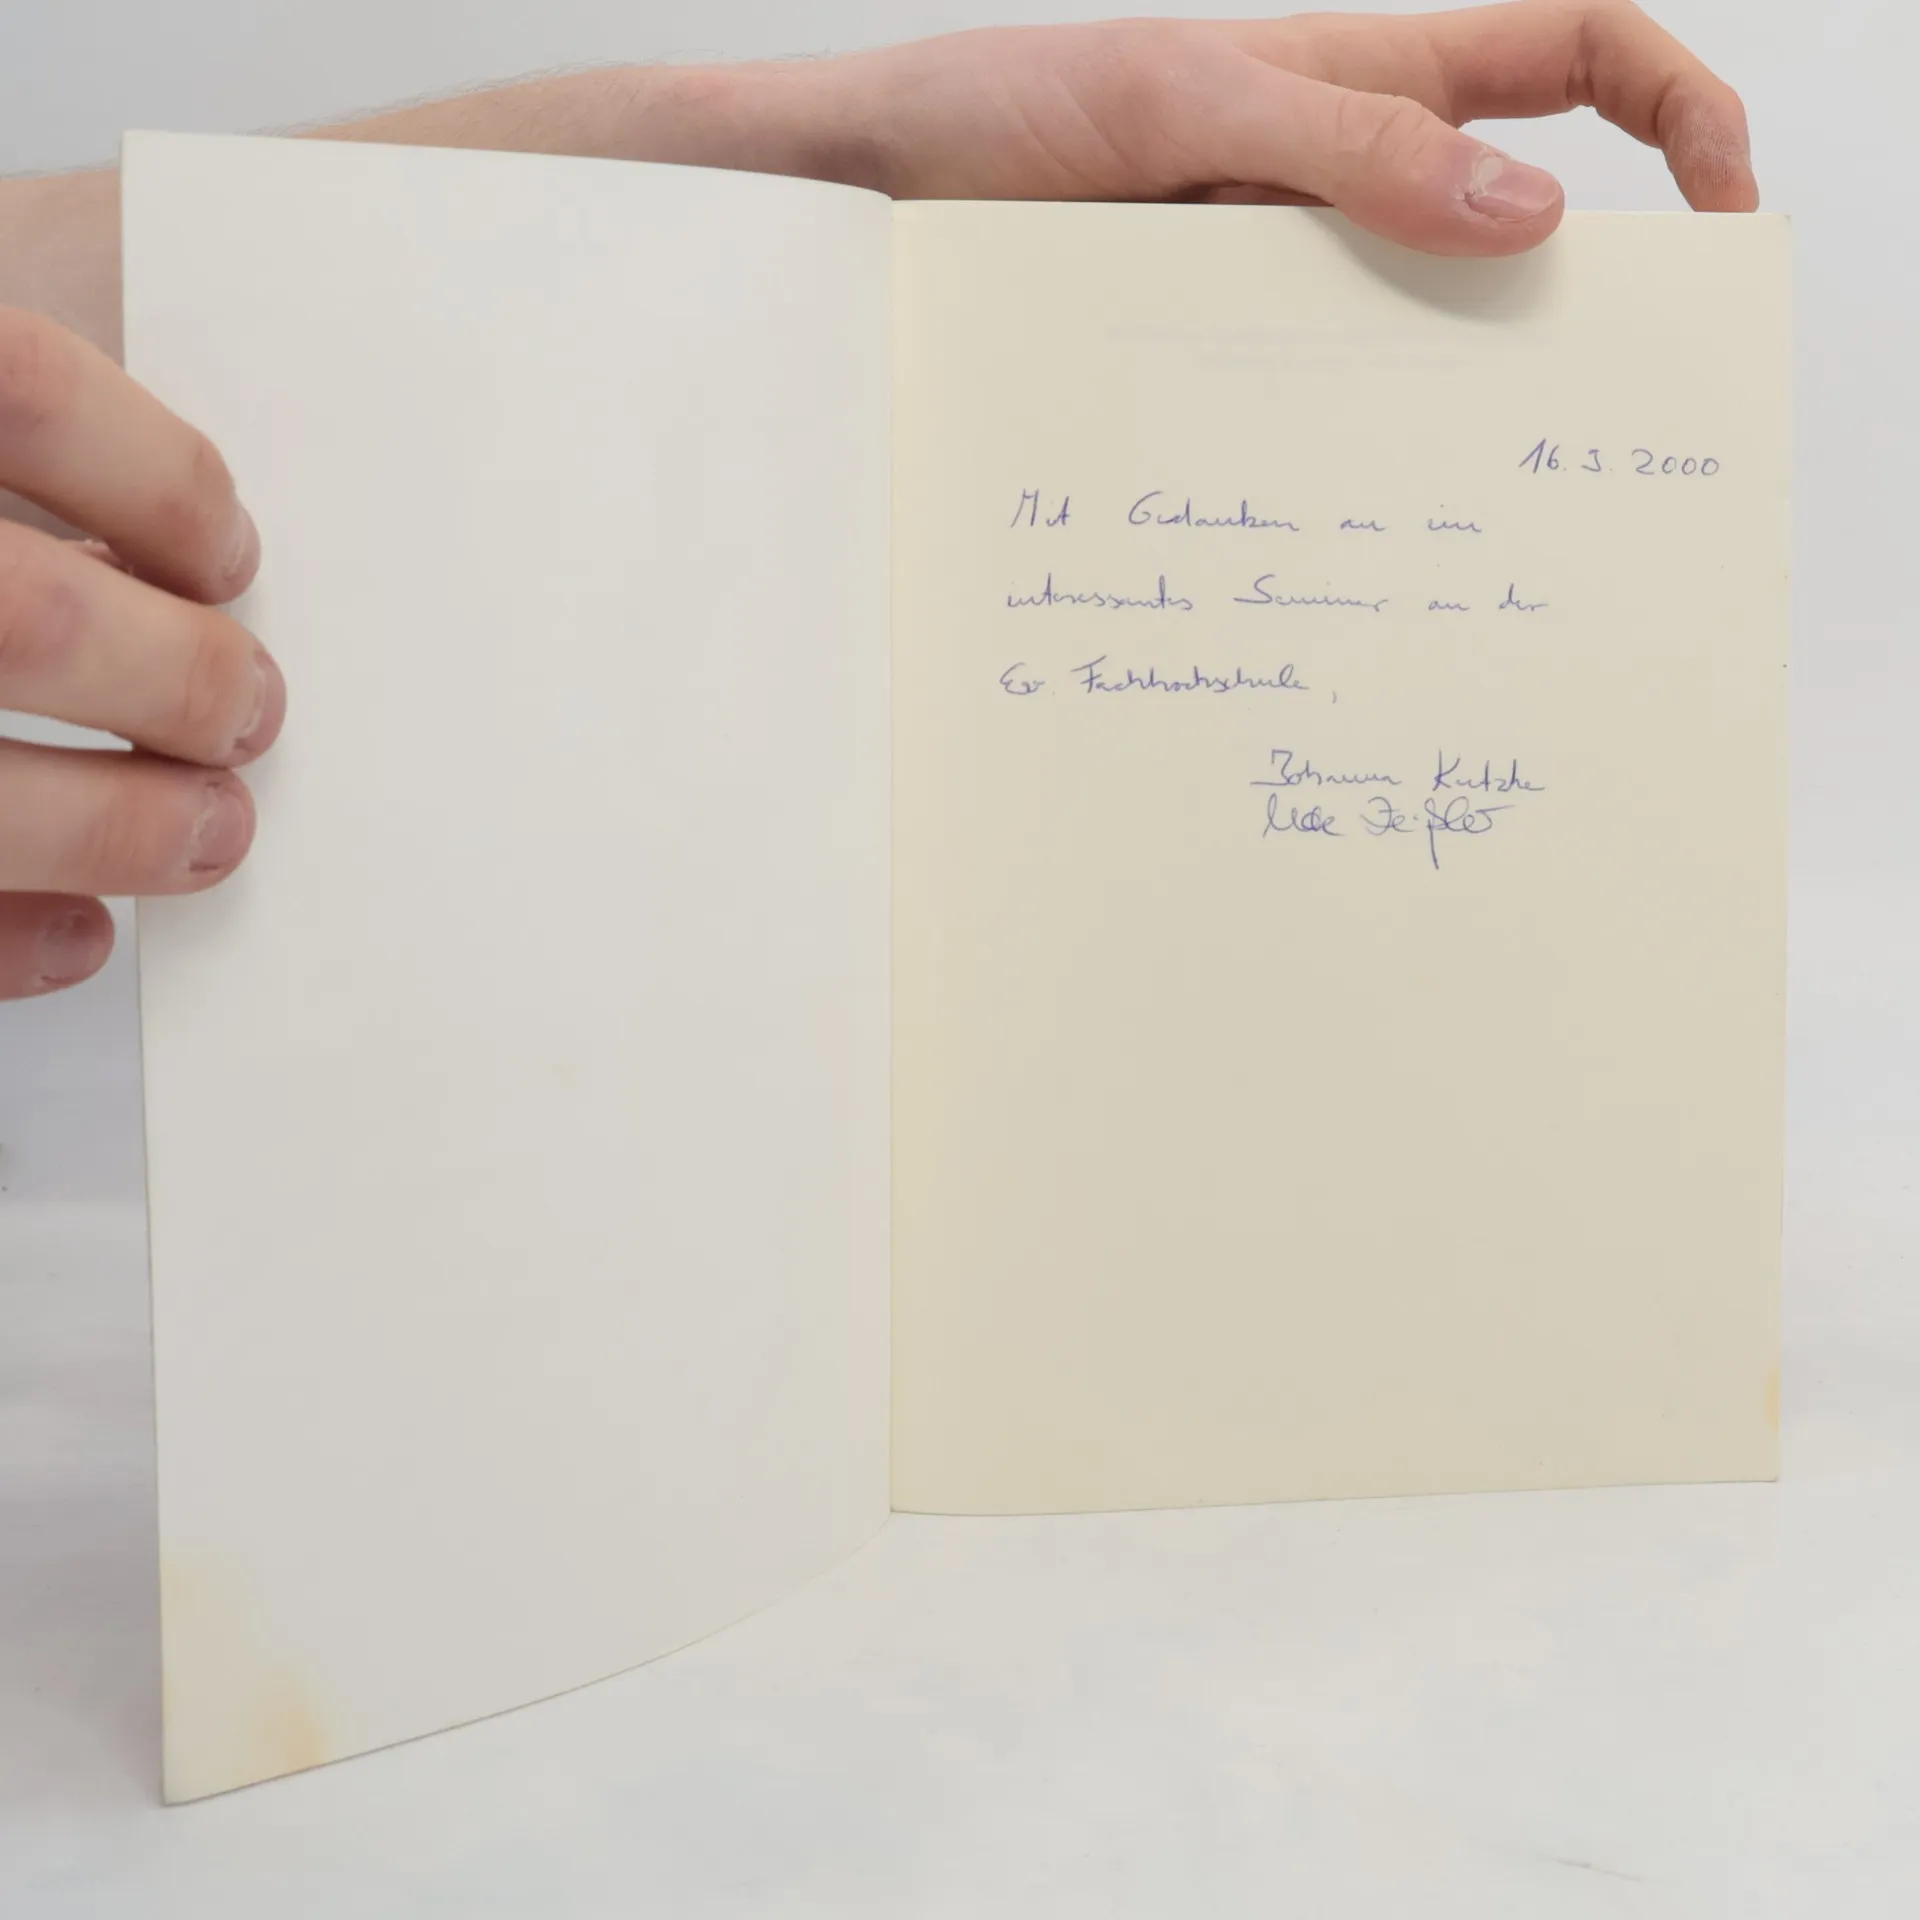 16. 3. 2000
Mit Gedanken an ein
interessantes Seminar an der
Ev. Fachhochschule,
Johanna Kutzke